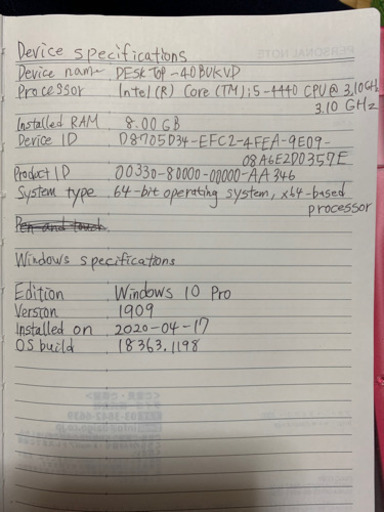 Device specifications
Device name DESKTOP-40BUKVD
Processor Intel(R) Core (TM) i5-4440 CPU@ 3.10GHz
3.10 GHz
Installed RAM 8.00 GB
Device ID D8705D34-EFC2-4FEA-9E09-
08A6E2D0357E
Product ID 00330-80000-00000-AA346
System type 64-bit operating system, x64-based
processor
Pen and touch
Windows specifications
Edition Windows 10 Pro
Version 1909
Installed on 2020-04-17
OS build 18363.1198